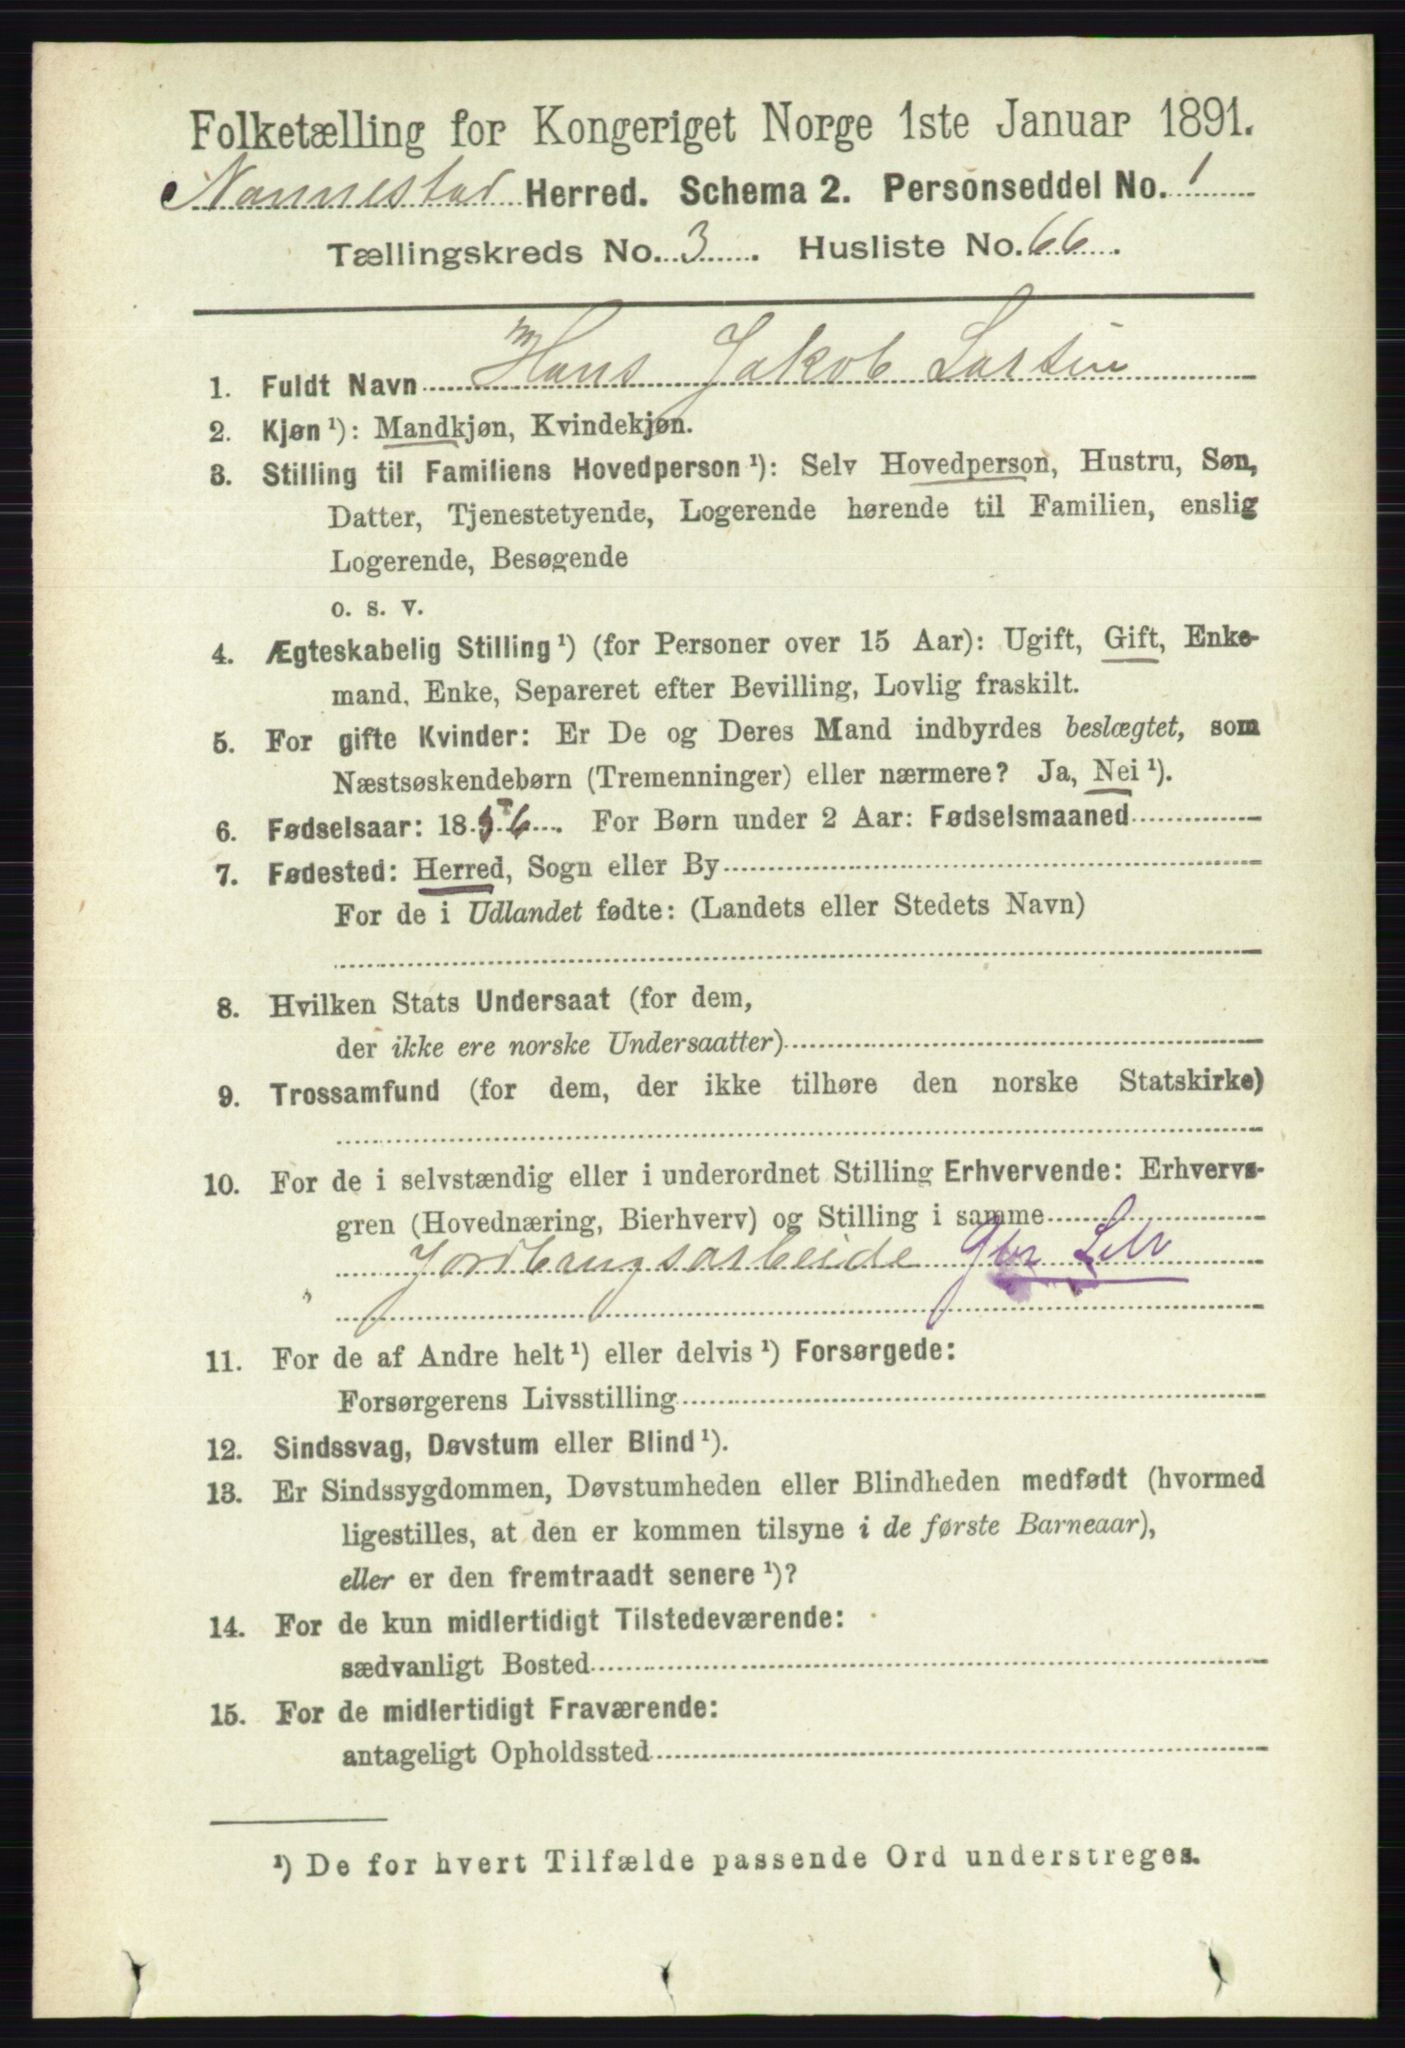 Folketælling for Kongeriget Norge 1ste Januar 1891.
Nannestad Herred. Schema 2. Personseddel No. 1
Tællingskreds No. 3. Husliste No. 66.
1. Fuldt Navn Hans Jakob Larsen
2. Kjøn ¹): Mandkjøn, Kvindekjøn.
3. Stilling til Familiens Hovedperson ¹): Selv Hovedperson, Hustru, Søn,
Datter, Tjenestetyende, Logerende hørende til Familien, enslig
Logerende, Besøgende
o. s. v.
4. Ægteskabelig Stilling ¹) (for Personer over 15 Aar): Ugift, Gift, Enke-
mand, Enke, Separeret efter Bevilling, Lovlig fraskilt.
5. For gifte Kvinder: Er De og Deres Mand indbyrdes beslægtet, som
Næstsøskendebørn (Tremenninger) eller nærmere? Ja, Nei ¹).
6. Fødselsaar: 1856. For Børn under 2 Aar: Fødselsmaaned
7. Fødested: Herred, Sogn eller By
For de i Udlandet fødte: (Landets eller Stedets Navn)
8. Hvilken Stats Undersaat (for dem,
der ikke ere norske Undersaatter)
9. Trossamfund (for dem, der ikke tilhøre den norske Statskirke)
10. For de i selvstændig eller i underordnet Stilling Erhvervende: Erhvervs-
gren (Hovednæring, Bierhverv) og Stilling i samme
Jordbrugsarbeide Gbr
11. For de af Andre helt ¹) eller delvis ¹) Forsørgede:
Forsørgerens Livsstilling
12. Sindssvag, Døvstum eller Blind ¹).
13. Er Sindssygdommen, Døvstumheden eller Blindheden medfødt (hvormed
ligestilles, at den er kommen tilsyne i de første Barneaar),
eller er den fremtraadt senere ¹)?
14. For de kun midlertidigt Tilstedeværende:
sædvanligt Bosted
15. For de midlertidigt Fraværende:
antageligt Opholdssted
¹) De for hvert Tilfælde passende Ord understreges.